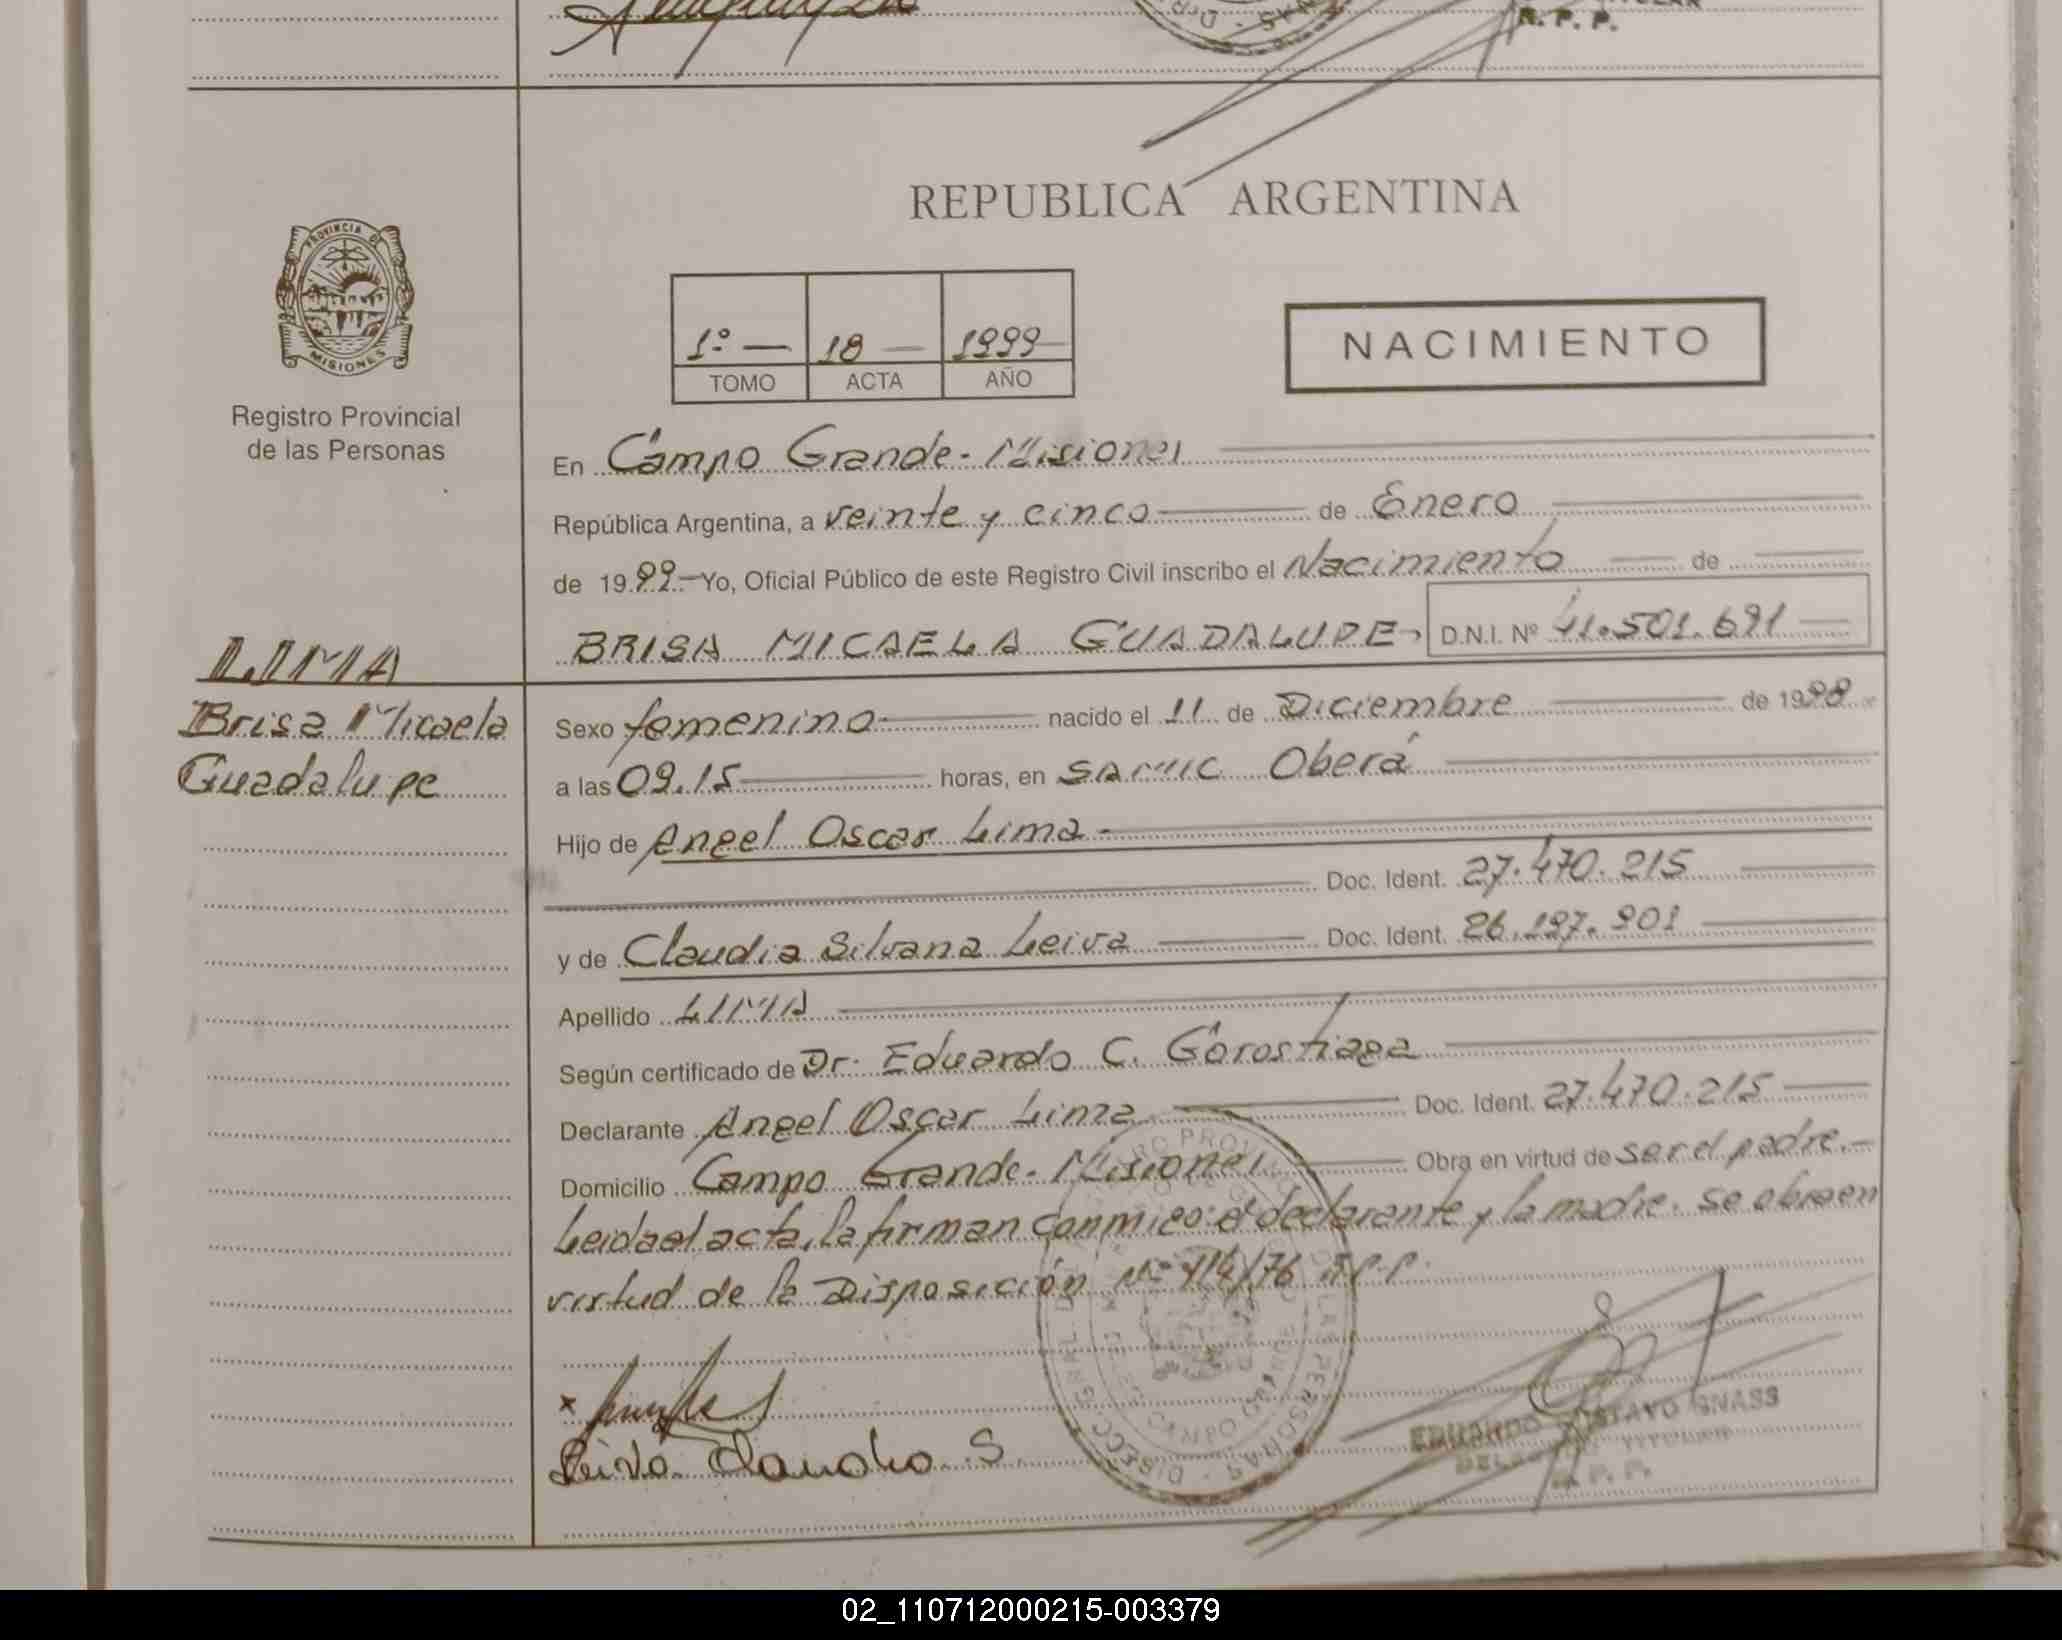 R. P. P.
REPUBLICA ARGENTINA
PROVINCIA DE
MISIONES
Registro Provincial
de las Personas
1º 18 1999
TOMO ACTA AÑO
NACIMIENTO
En Campo Grande - Misiones
República Argentina, a veinte y cinco de Enero
de 1999.- Yo, Oficial Público de este Registro Civil inscribo el Nacimiento de
BRISA MICAELA GUADALUPE D.N.I. Nº 41.501.691
LIMA
Brisa Micaela
Guadalupe
Sexo femenino nacido el 11 de Diciembre de 1998
a las 09.15 horas, en SAMIC Oberá
Hijo de Angel Oscar Lima -
Doc. Ident. 27.470.215
y de Claudia Silvana Leiva Doc. Ident. 26.197.901
Apellido LIMA
Según certificado de Dr. Eduardo C. Gorostiaga
Declarante Angel Oscar Lima Doc. Ident. 27.470.215
Domicilio Campo Grande - Misiones Obra en virtud de ser el padre.-
Leida el acta, la firman conmigo el declarante y la madre. Se obra en
virtud de la Disposición Nº /76 R.P.P.
Leiva Claudia S
EDUARDO GUSTAVO GNASS
DELEGADO TITULAR
R. P. P.
02_110712000215-003379